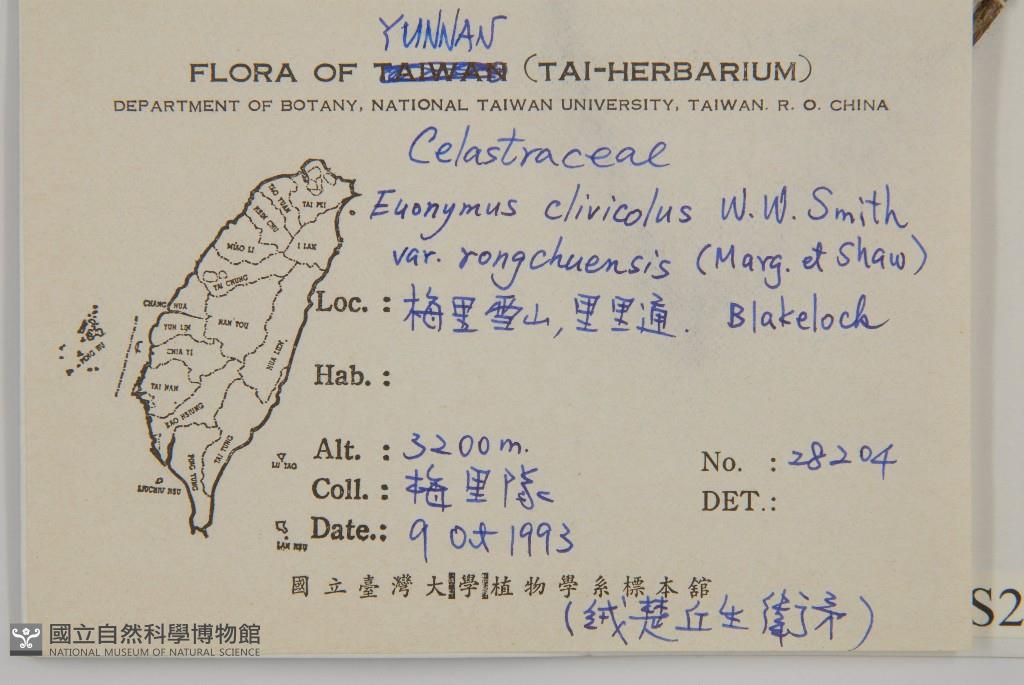 YUNNAN
FLORA OF TAIWAN (TAI-HERBARIUM)
DEPARTMENT OF BOTANY, NATIONAL TAIWAN UNIVERSITY, TAIWAN. R. O. CHINA
Celastraceae
Euonymus clivicolus W. W. Smith
var. rongchuensis (Marg. et Shaw)
Loc. : 梅里雪山, 里里通. Blakelock
Hab. :
Alt. : 3200 m.
No. : 28204
Coll. : 梅里隊
DET. :
Date. : 9 Oct 1993
TAI PEI
TAO YUAN
HSIN CHU
I LAN
MIAO LI
TAI CHUNG
CHANG HUA
NAN TOU
YUN LIN
HUA LIEN
CHIA YI
TAI NAN
KAO HSIUNG
TAI TUNG
PING TUNG
LU TAO
LIUCHIU HSU
LAN HSU
國立臺灣大學植物學系標本館
(絨楚丘生衛矛)
S2
國立自然科學博物館
NATIONAL MUSEUM OF NATURAL SCIENCE